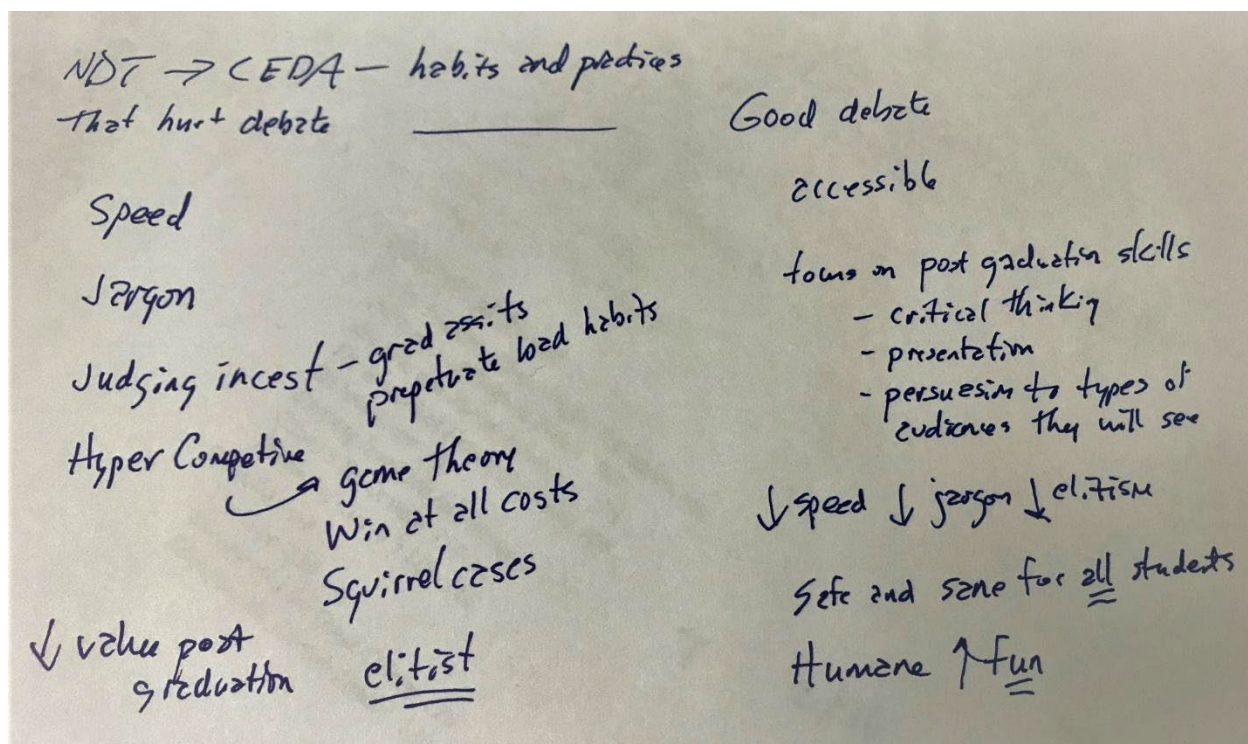 NDT → CEDA — habits and practices
that hurt debate
Speed
Jargon
Judging incest – grad assits
prepetuate load habits
Hyper Competive
game theory
Win at all costs
Squirrel cases
↓ value post
graduation
elitist
Good debate
accessible
focus on post graduation skills
- critical thinking
- presentation
- persuasion to types of
audiences they will see
↓ speed ↓ jargon ↓ elitism
Safe and sane for all students
Humane ↑ fun